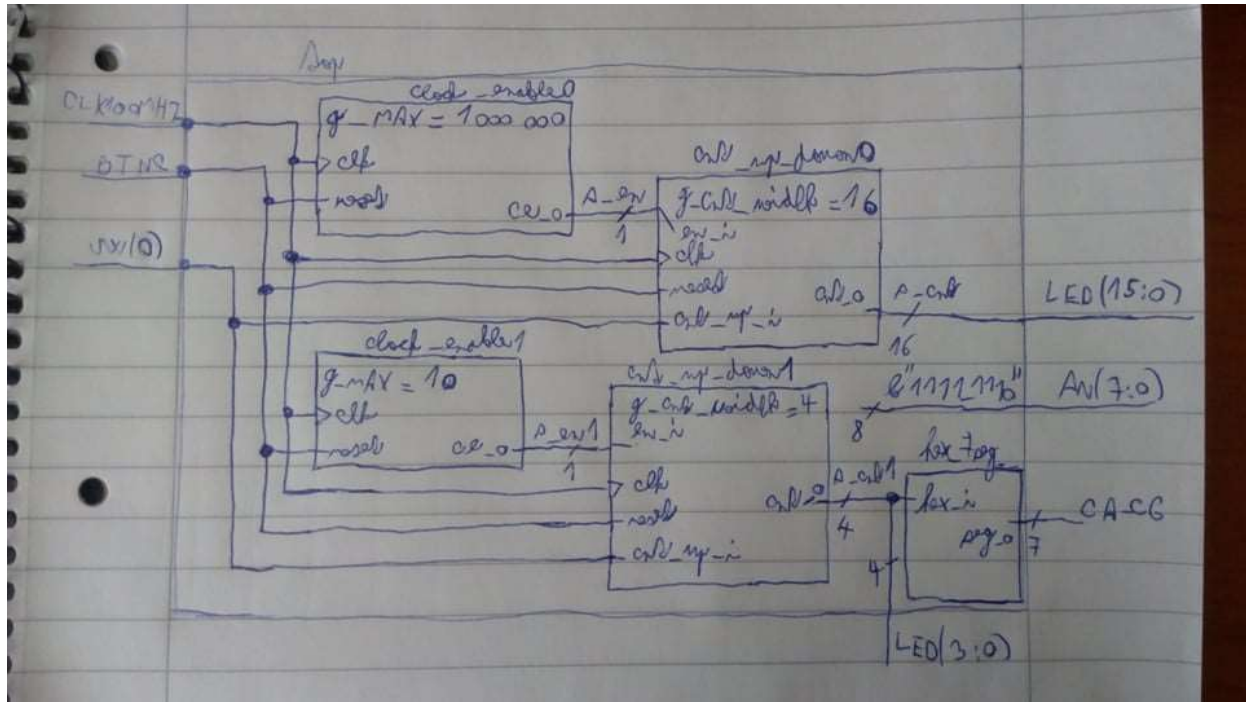 Top
CLK100MHZ
BTNC
SW(0)
clock_enable0
g_MAX = 1000 000
clk
reset
ce_o
s_en
1
cnt_up_down0
g_cnt_width = 16
en_i
clk
reset
cnt_up_i
cnt_o
s_cnt
16
LED(15:0)
clock_enable1
g_MAX = 10
clk
reset
ce_o
s_en1
1
cnt_up_down1
g_cnt_width = 4
en_i
clk
reset
cnt_up_i
cnt_o
s_cnt1
4
8
AN(7:0)
hex_7seg
hex_i
seg_o
7
CA-CG
4
LED(3:0)